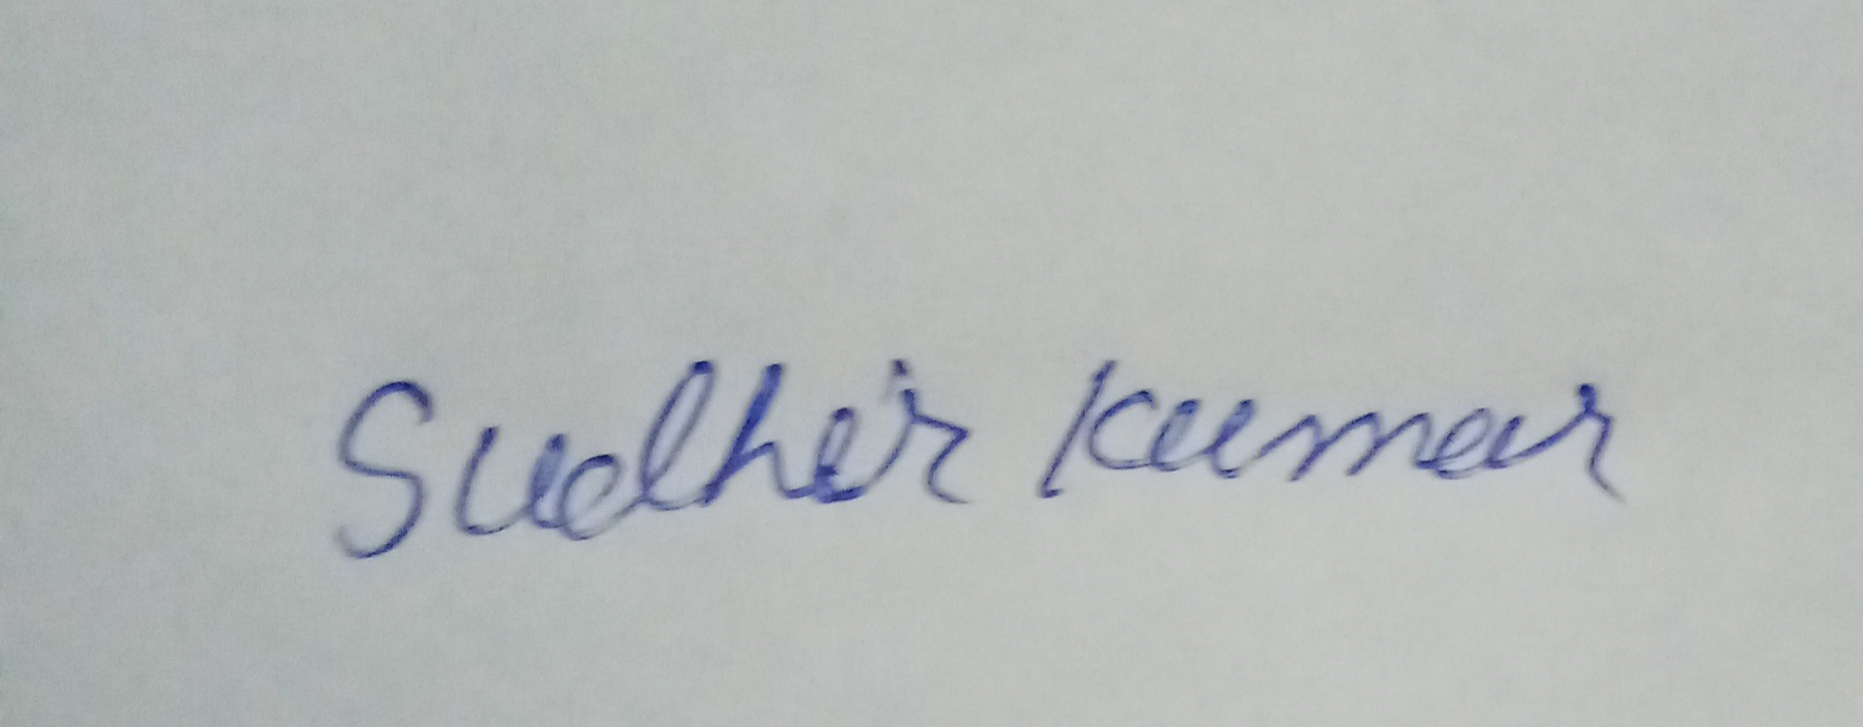 Sudheir Kumar